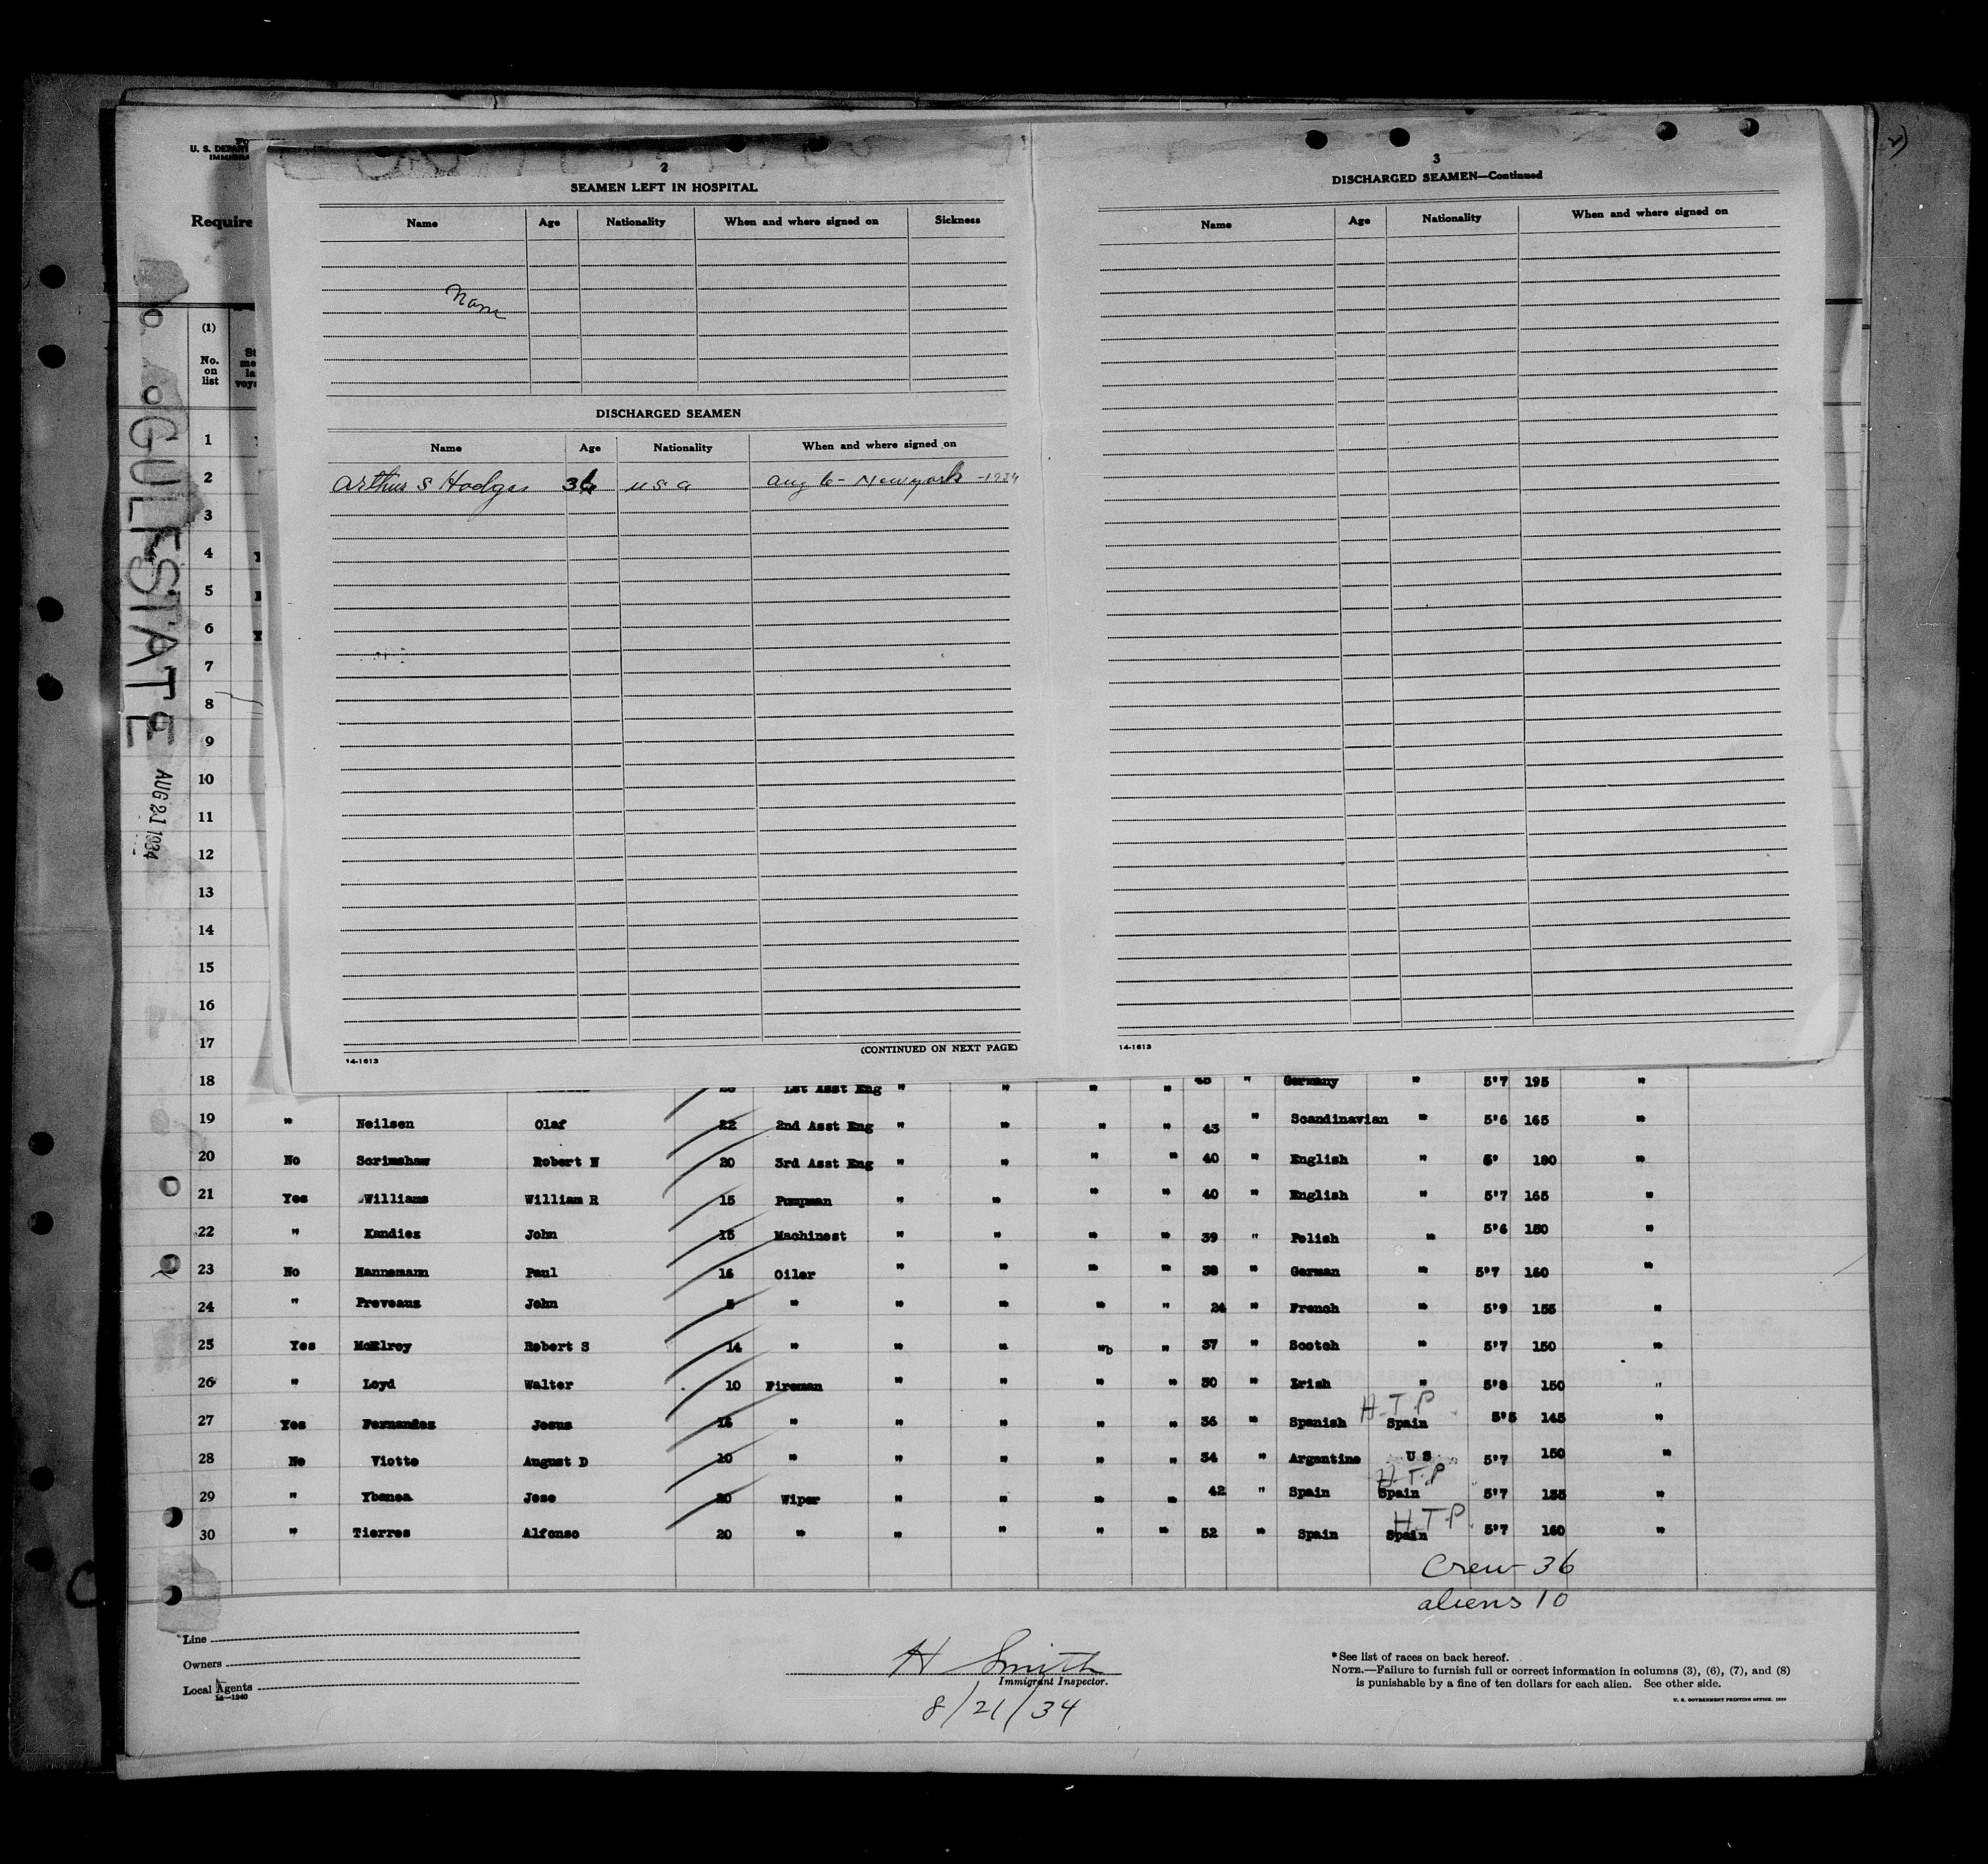 U. S. DEPART
IMMIGRA
Require
GULFSTATE
AUG 21 1934
2
SEAMEN LEFT IN HOSPITAL
Name Age Nationality When and where signed on Sickness
None
DISCHARGED SEAMEN
Name Age Nationality When and where signed on
Arthur S Hodges 36 U S A Aug 6 - New York - 1934
14-1613
(CONTINUED ON NEXT PAGE)
3
DISCHARGED SEAMEN—Continued
Name Age Nationality When and where signed on
14-1613
(1)
No.
on
list
1
2
3
4
5
6
7
8
9
10
11
12
13
14
15
16
17
18 1st Asst Eng " " " " " Germany " 5'7 195 "
19 " Neilsen Olaf 22 2nd Asst Eng " " " " 43 " Scandinavian " 5'6 165 "
20 No Scrimshaw Robert N 20 3rd Asst Eng " " " " 40 " English " 6' 180 "
21 Yes Williams William R 15 Pumpman " " " " 40 " English " 5'7 165 "
22 " Kandiez John 15 Machinest " " " " 39 " Polish " 5'6 150 "
23 No Hannemann Paul 16 Oiler " " " " 38 " German " 5'7 160 "
24 " Preveaux John 5 " " " " " 24 " French " 5'9 155 "
25 Yes McElroy Robert S 14 " " " " " 37 " Scotch " 5'7 150 "
26 " Loyd Walter 10 Fireman " " " " 30 " Irish " 5'8 150 "
27 Yes Fernandez Jesus 16 " " " " " 36 " Spanish H.T.P Spain 5'5 145 "
28 No Viotto August D 10 " " " " " 34 " Argentine U S 5'7 150 "
29 " Ybanea Jose 20 Wiper " " " " 42 " Spain H.T.P Spain 5'7 155 "
30 " Tierres Alfonso 20 " " " " " 52 " Spain H.T.P. Spain 5'7 160 "
Crew 36
aliens 10
Line
Owners
Local Agents
14—1240
H Smith
Immigrant Inspector.
8/21/34
*See list of races on back hereof.
NOTE.—Failure to furnish full or correct information in columns (3), (6), (7), and (8)
is punishable by a fine of ten dollars for each alien. See other side.
U. S. GOVERNMENT PRINTING OFFICE. 1929